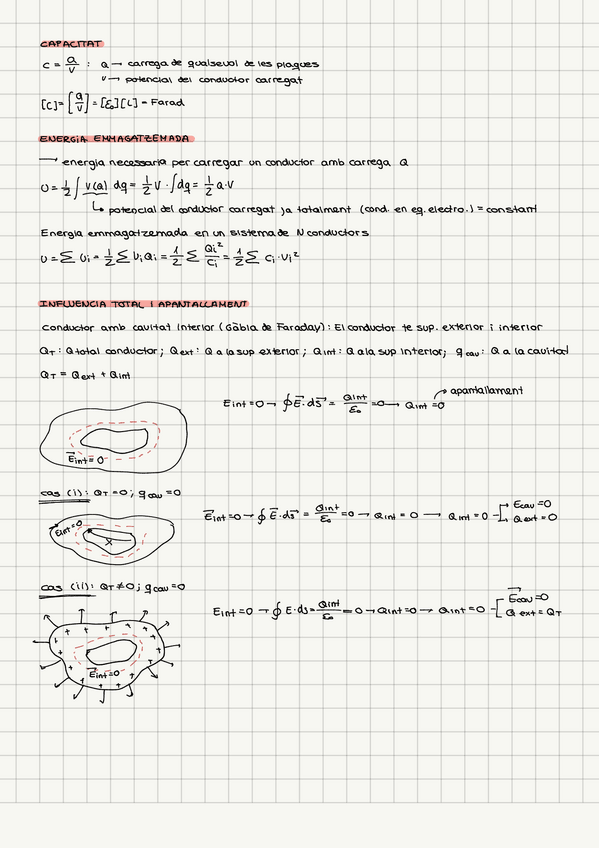 CAPACITAT
C = Q/V : Q → carrega de qualsevol de les plaques
V → potencial del conductor carregat
[C] = [Q/V] = [ε₀][L] = Farad
ENERGIA EMMAGATZEMADA
→ energia necessaria per carregar un conductor amb carrega Q
U = 1/2 ∫ V(Q) dq = 1/2 V · ∫dq = 1/2 Q·V
↳ potencial del conductor carregat ja totalment (cond. en eq. electro.) = constant
Energia emmagatzemada en un sistema de N conductors
U = ∑ Ui = 1/2 ∑ Vi Qi = 1/2 ∑ Qi²/Ci = 1/2 ∑ Ci · Vi²
INFLUENCIA TOTAL I APANTALLAMENT
Conductor amb cavitat interior (Gàbia de Faraday): El conductor te sup. exterior i interior
QT : Q total conductor; Qext : Q a la sup exterior; Qint : Q a la sup interior; qcav : Q a la cavitat
QT = Qext + Qint
apantallament
Eint = 0 → ∮ E⃗ · ds⃗ = Qint/ε₀ = 0 → Qint = 0
E⃗int = 0
cas (i): QT = 0; qcav = 0
E⃗int = 0 → ∮ E⃗ · ds⃗ = Qint/ε₀ = 0 → Qint = 0 → Qint = 0 → Ecav = 0
Qext = 0
Eint = 0
cas (ii): QT ≠ 0; qcav = 0
Eint = 0 → ∮ E · ds = Qint/ε₀ = 0 → Qint = 0 → Qint = 0 → E⃗cav = 0
Qext = QT
E⃗int = 0